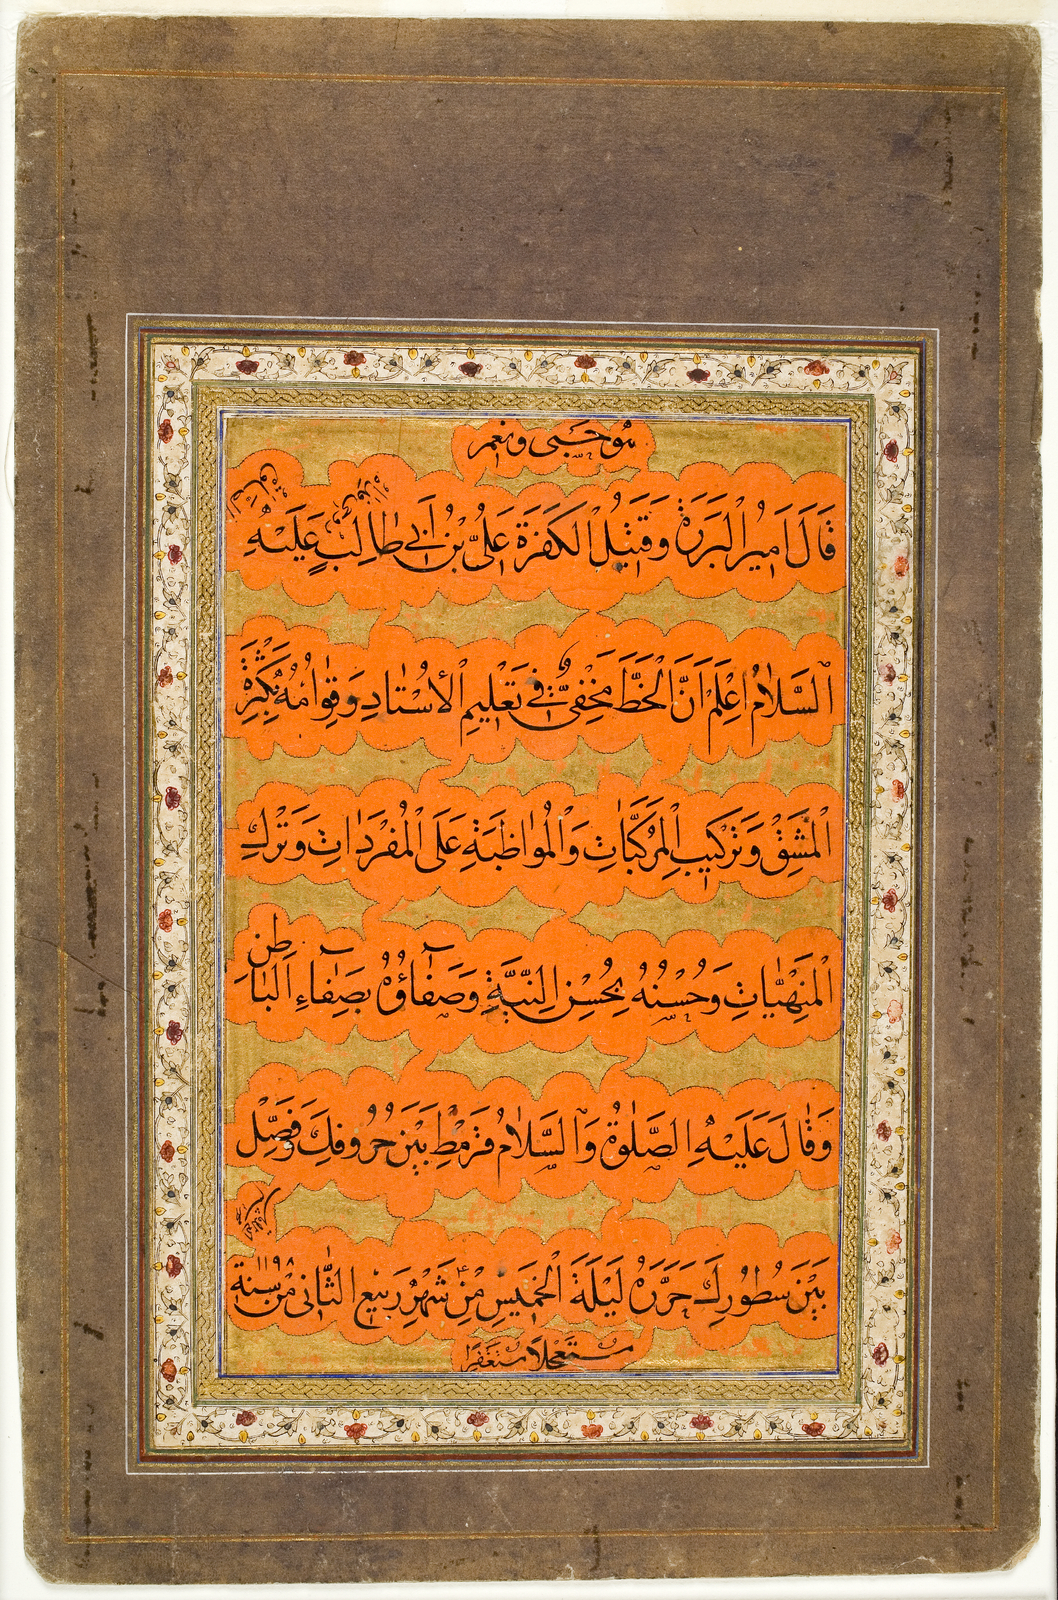 هو حسبی ونعم
قَالَ اَمیرُ الْبَرَرَةِ وَقٰتِلُ الْکَفَرَةِ عَلِیُّ بْنُ اَبی طٰالِبٍ عَلَیْهِ
السَّلَامُ اِعْلَمْ اَنَّ الْخَطَّ مَخْفِیٌّ فی تَعْلیمِ الْاُسْتٰادِ وَقِوٰامُهُ بِکَثْرَةِ
الْمَشْقِ وَتَرْکیبِ الْمُرَکَّبٰاتِ وَالْمُوٰاظَبَةِ عَلَی الْمُفْرَدٰاتِ وَتَرْكِ
الْمَنْهِیّٰاتِ وَحُسْنُهُ بِحُسْنِ النِّیَّةِ وَصَفٰاؤُهُ بِصَفٰاءِ الْبٰاطِنِ
وَقٰالَ عَلَیْهِ الصَّلٰوةُ وَالسَّلَامُ قَرْمِطْ بَیْنَ حُرُوفِكَ وَفَصِّلْ
بَیْنَ سُطُورِكَ حَرَّرَهُ لَیْلَةَ الْخَمیسِ ۴ مِنْ شَهْرِ رَبیعِ الثّٰانی مِنْ سنة ۱۱۹۸
مستعجلًا مستغفرًا